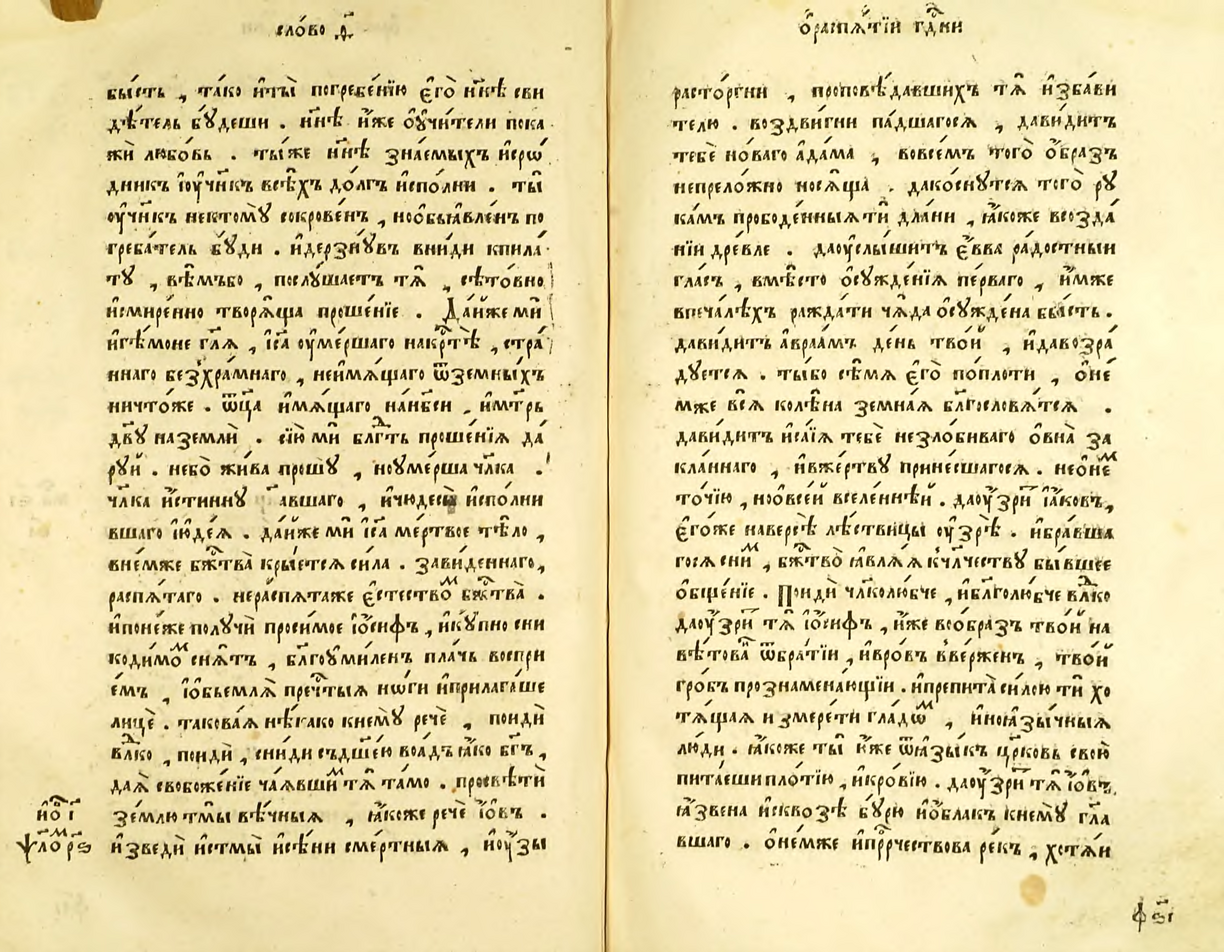 сло́во д҃
бы́сть , та́ко и҆ты̀ погребе́нїю є҆го̀ нн҃ѣ сви
дѣ́тель бꙋ́деши . нн҃ѣ и҆́же оу҆чи́тели пока
жѝ любо́вь . ты́же нн҃ѣ зна́емыхъ и҆сро́
дникъ і҆оу҆чн҃къ всѣ́хъ до́лгъ и҆спо́лни . ты̀
оу҆чн҃къ нектомꙋ̀ сокрове́нъ , нооб̾ꙗвле́нъ по
греба́тель бꙋ́ди . и҆дерзнꙋ́въ вни́ди кпила́
тꙋ , вѣ́мъбо , послꙋ́шаетъ тѧ̀ , сѣ́товно
и҆смире́нно творѧ́ща проше́нїе . Да́йже мѝ
и҆ге́моне гл҃ѧ , і҆с҃а оу҆ме́ршаго накрⷭ҇тѣ̀ , стра́
ннаго безхра́мнаго , неи҆мѧ́щаго ѿземны́хъ
ничто́же . ѿц҃а и҆мѧ́щаго нанб҃си , и҆мт҃рь
дв҃ꙋ наземлѝ . сїю̀ мѝ блгⷣть проше́нїѧ да́
рꙋй . небо̀ жи́ва прошꙋ̀ , ноу҆ме́рша чл҃ка .
чл҃ка и҆́стиннꙋ авшаго , и҆чюдеса̀ и҆спо́лни
вшаго і҆ю҆де́ѧ . да́йже мѝ і҆с҃а ме́ртвое тѣ́ло ,
вне́мже бж҃тва̀ кры́етсѧ си́ла . зави́деннаго ,
распѧ́таго . нераспѧ́таже є҆стество́ⷨ бж҃тва̀ .
и҆поне́же полꙋчѝ проси́мое і҆ѡ́сифъ , и҆кꙋ́пно сни
коди́моⷨ снѧ́тъ , бл҃гоу҆миле́нъ пла́чь воспри
е́мъ , і҆об̾е́млѧ преч҃тыѧ но́ги и҆прилага́ше
лицѐ . такова́ѧ нѣ́како кнемꙋ̀ речѐ , поидѝ
вл҃ко , поидѝ , сни́ди съдш҃ею во́адъ ꙗ҆́ко бг҃ъ ,
даѧ̀ свобоже́нїе ча́ѧвшиⷨ тѧ̀ та́мо . просвѣтѝ
зе́млю тмы̀ вѣ́чныѧ , ꙗ҆́коже речѐ і҆́ѡвъ .
и҆зведѝ и҆стмы̀ и҆сѣ́ни сме́ртныѧ , и҆оу҆́зы
і҆ѡⷡ҇ і҃
ѱалоⷨ рѕ҃
ѡ҆распѧ́тїи гдⷭ҇ни
расто́ргни , проповѣ́давшихъ тѧ̀ и҆зба́ви
телю . воздви́гни па́дшагосѧ , дави́дитъ
тебѐ но́ваго а҆да́ма , вовсе́мъ того̀ о҆́бразъ
непрело́жно носѧ́ща . дако́снꙋтсѧ того̀ рꙋ
ка́мъ прободе́нныѧтѝ дла́ни , ꙗ҆́коже всозда́
нїи дре́вле . даоу҆слы́шитъ є҆́вва ра́достный
гла́съ , вмѣ́сто о҆сꙋжде́нїѧ пе́рваго , и҆́мже
впеча́лѣхъ ражда́ти ча́да о҆сꙋжде́на бы́сть .
дави́дитъ а҆враа́мъ де́нь тво́й , и҆давозра́
дꙋетсѧ . ты́бо сѣ́мѧ є҆го̀ попло́ти , о҆не
мже всѧ̀ колѣ́на земна́ѧ блг҃ословѧ́тсѧ .
дави́дитъ и҆са́їѧ тебѐ незло́биваго о҆вна̀ за
кла́ннаго , и҆вже́ртвꙋ прине́сшагосѧ . нео҆не́ⷨ
то́чїю , нообвсе́й вселе́ннѣй . даоу҆́зритъ і҆а́ковъ ,
є҆го́же наве́рсѣ лѣ́ствицы оу҆зрѣ̀ . и҆бра́вша
госѧ сни́ⷨ , бж҃тво̀ ꙗ҆влѧ́ѧ кч҃лчествꙋ бы́вшее
о҆бще́нїе . Поидѝ чл҃колю́бче , и҆бл҃голю́бче вл҃ко
даоу҆́зритъ тѧ̀ і҆ѡ́сифъ , и҆́же вообра́зъ тво́й на
вѣ́товаⷩ ѿбра́тїи , и҆вро́въ вве́рженъ , тво́й
гро́бъ прознаменꙋ́ющїи . и҆препита̀ си́лою тѝ хо
тѧ́щаѧ и҆змере́ти гла́дѡⷨ , и҆ноꙗзы́чныѧ
лю́ди . ꙗ҆́коже ты̀ и҆́же ѿꙗзы́къ цр҃ковь свою̀
пита́еши пло́тїю , и҆кро́вїю . даоу҆́зритъ тѧ̀ і҆́ѡвъ ,
ꙗ҆́звена и҆сквозѣ̀ бꙋ́рю и҆о҆́блакъ кнемꙋ̀ гл҃а
вшаго . о҆не́мже и҆прⷪ҇рчествова ре́къ , хотѧ́й
ф҃ѕі